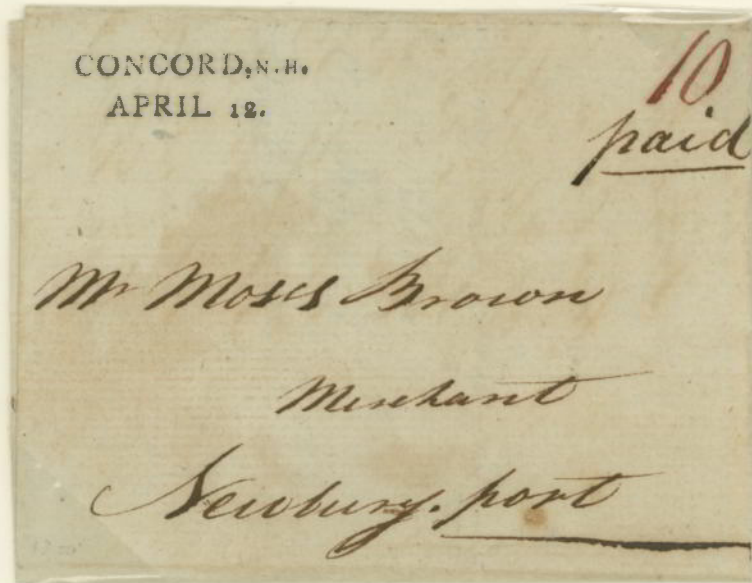 CONCORD, N. H.
APRIL 12.
10
paid
Mr Moses Brown
Merchant
Newbury-port